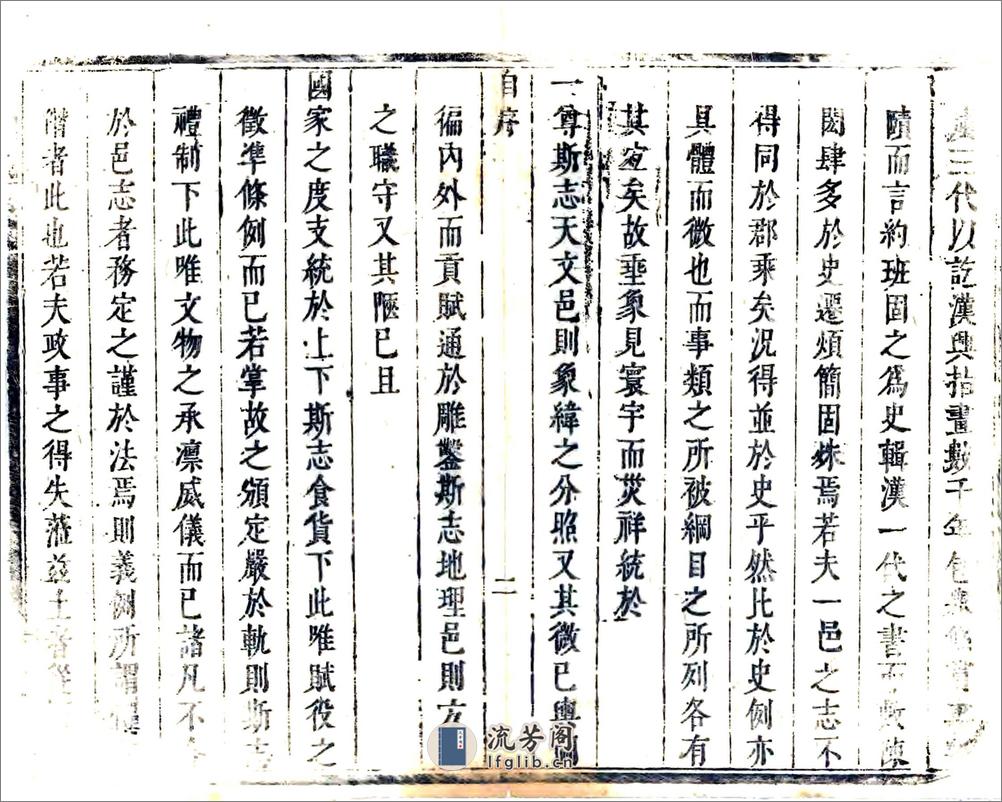 三代以訖漢興指畫數千年包
賾而言約班固之爲史輯漢一代之書而敷陳
閎肆多於史遷煩簡固殊焉若夫一邑之志不
得同於郡乘矣況得並於史乎然比於史例亦
具體而微也而事類之所被綱目之所列各有
其宐矣故垂象見寰宇而災祥統於
一尊斯志天文邑則象緯之分照又其微已輿
自序
二
徧內外而貢賦通於雕鑿斯志地理邑則方
之職守又其陿已且
國家之度支統於上下斯志食貨下此唯賦役之
徵準條例而已若掌故之頒定嚴於軌則斯志
禮制下此唯文物之承凛威儀而已諸凡不
於邑志者務定之謹於法焉則義例所謂
者此也若夫政事之得失蒞茲土者
流芳阁
lfglib.cn